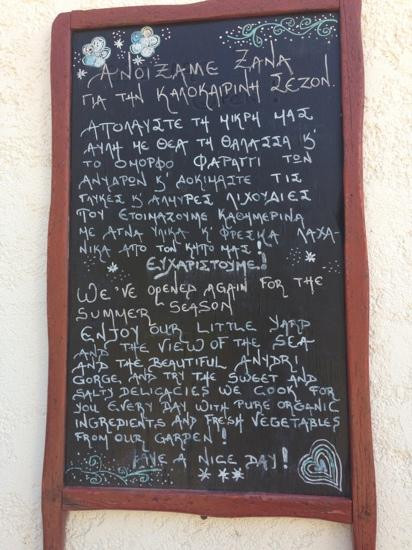 ΑΝΟΙΞΑΜΕ ΞΑΝΑ
ΓΙΑ ΤΗΝ ΚΑΛΟΚΑΙΡΙΝΗ ΣΕΖΟΝ.
ΑΠΟΛΑΥΣΤΕ ΤΗ ΜΙΚΡΗ ΜΑΣ
ΑΥΛΗ ΜΕ ΘΕΑ ΤΗ ΘΑΛΑΣΣΑ Κ'
ΤΟ ΟΜΟΡΦΟ ΦΑΡΑΓΓΙ ΤΩΝ
ΑΝΥΔΡΩΝ Κ' ΔΟΚΙΜΑΣΤΕ ΤΙΣ
ΓΛΥΚΕΣ Κ' ΑΛΜΥΡΕΣ ΛΙΧΟΥΔΙΕΣ
ΠΟΥ ΕΤΟΙΜΑΖΟΥΜΕ ΚΑΘΗΜΕΡΙΝΑ
ΜΕ ΑΓΝΑ ΥΛΙΚΑ Κ' ΦΡΕΣΚΑ ΛΑΧΑ-
ΝΙΚΑ ΑΠΟ ΤΟΝ ΚΗΠΟ ΜΑΣ!
ΕΥΧΑΡΙΣΤΟΥΜΕ!
WE'VE OPENED AGAIN FOR THE
SUMMER SEASON
ENJOY OUR LITTLE YARD
AND THE VIEW OF THE SEA
AND THE BEAUTIFUL ANYDRI
GORGE, AND TRY THE SWEET AND
SALTY DELICACIES WE COOK FOR
YOU EVERY DAY WITH PURE ORGANIC
INGREDIENTS AND FRESH VEGETABLES
FROM OUR GARDEN!
HAVE A NICE DAY!